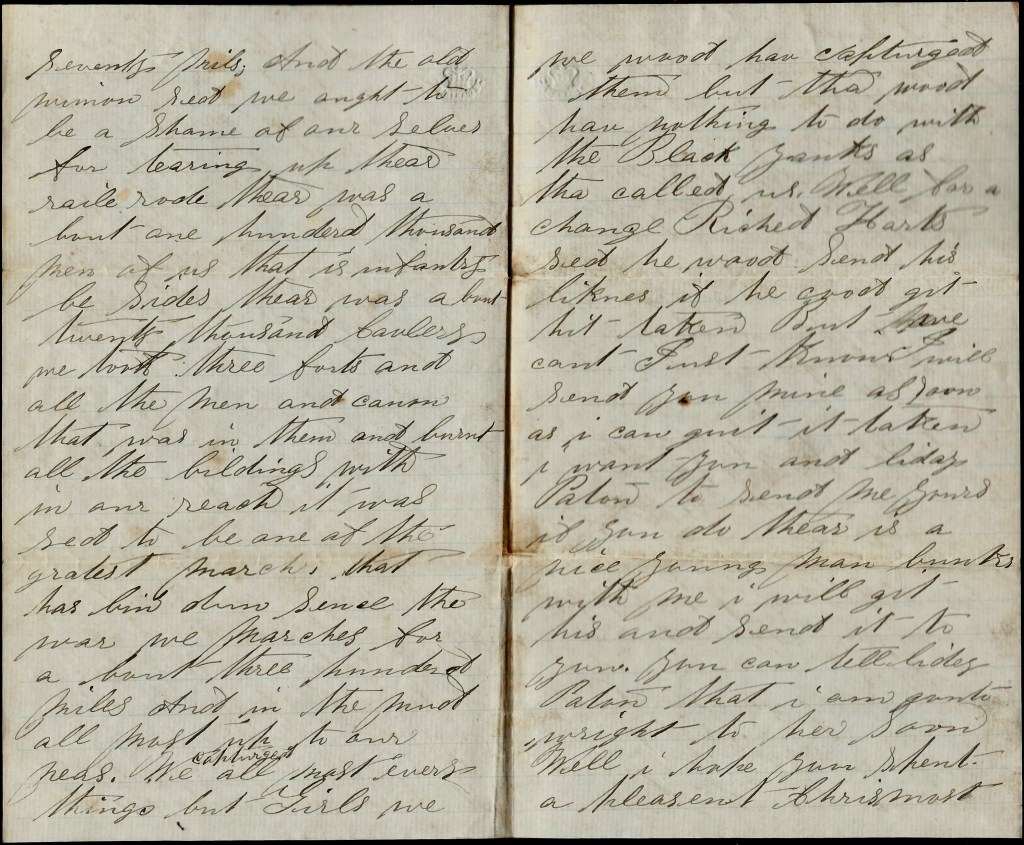 seventy mils, And the old
wimon sed we aught to
be a shame of our selves
for tearing up thear
raile rode thear was a
bout one hunderd thousand
men of us that is infantry
be sides thear was a bout
twenty thousand Cavlery
we took three forts and
all the men and canon
that was in them and burnt
all the bildings with
in our reach it was
sed to be one of the
gratest march, that
has bin dun Sence the
war we marched for
a bout three hunderd
miles And in the mud
all most up to our
neas. We capturged all most every
things but Girls we
we wood hav capturged
them but tha wood
hav nothing to do with
the Black yanks as
tha called us. Well for a
change Riched Harts
sed he wood Send his
liknes if he cood git
hit taken But
cant Just know I will
send you mine as soon
as i can guit it taken
i want you and lidey
Paton to send me yours
if you do thear is a
nice young man bunks
with me i will git
his and send it to
you. you can tell lidey
Paton that i am gonto
wright to her Soon
Well i hope you Spent
a pleasent Chrismost